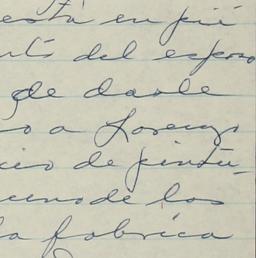 está en pié
del esposo
de darle
o a Lorenzo
de pintu-
de los
la fabrica